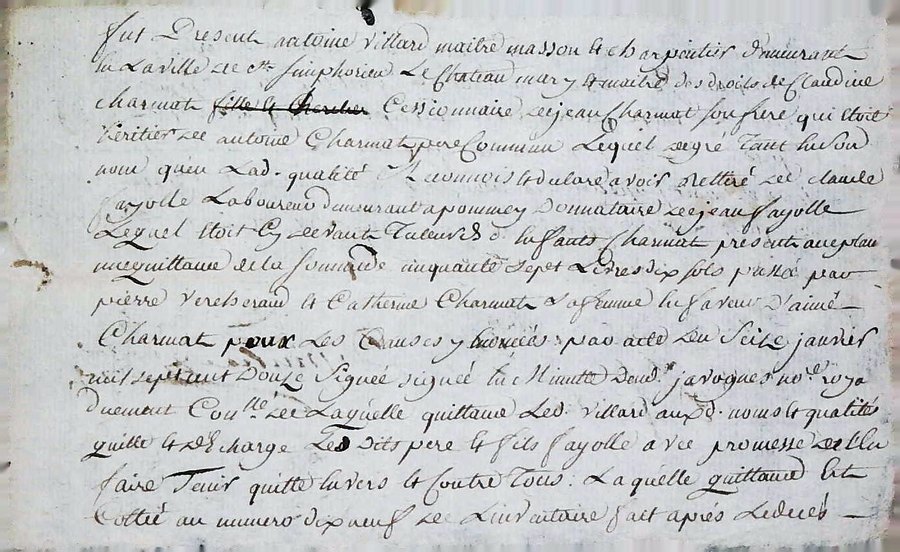 fut Present antoine villard maitre masson & charpentier demeurant
En Laville de St. Simphorien Le Chateau mary & maitre des droits de Claudine
Charmat fille & heritier Cessionnaire de jean Charmat son frere qui Etoit
heritier de antoine Charmat pere Commun Lequel de gré Tant En son
nom qu'en Lad. qualité Reconnois & declare avoir Rettiré de claude
fayolle Laboureur demeurant a pommey Donnataire de jean fayolle
Lequel Etoit Cy devant Tuteur d. Enfants Charmat present
une quittance de la somme de cinquante sept Livres dix sols passée par
pierre & Catherine Charmat sa femme En faveur d'aimé
Charmat pour Les Causes y Enoncées par acte du Seize janvier
mil sept cent Douze Signée signée En Minute dud. jarognes no.re royal
duement Con.llé de Laquelle quittance Led. villard auxd. noms & qualités
quitte & decharge Lesdits pere & fils fayolle avec promesse de Les En
faire Tenir quitte Envers & Contre Tous: Laquelle quittance Est
Cottée au numero dix neuf de L'inventaire fait aprés Ledeces